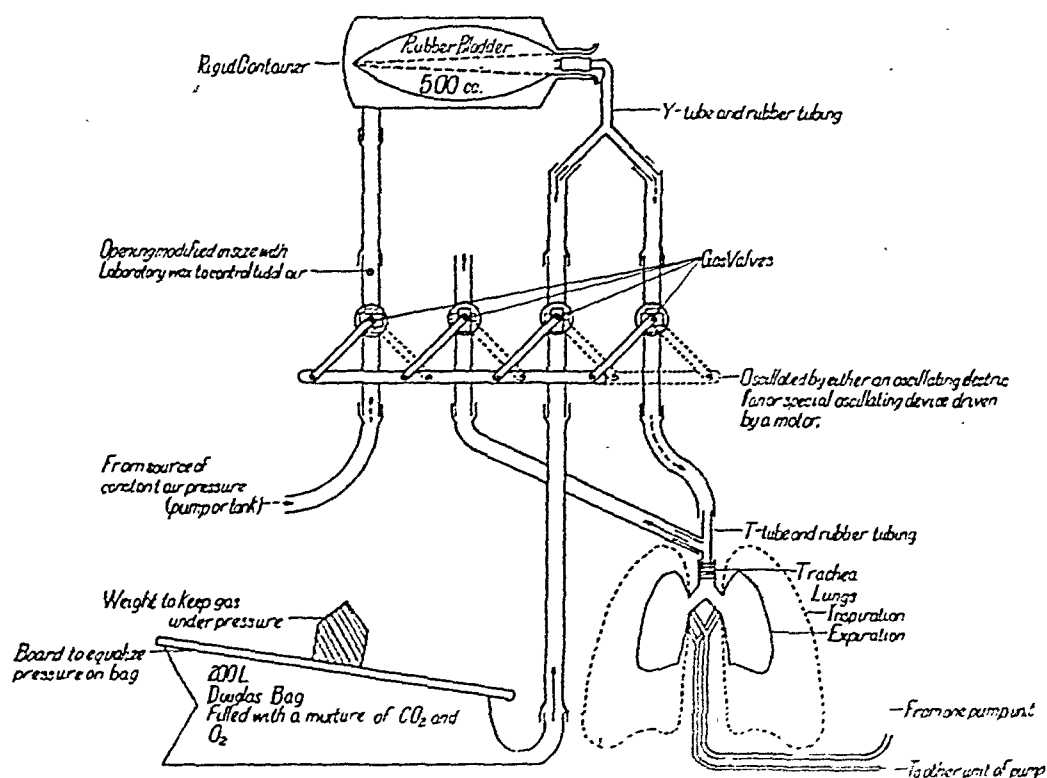 Rubber Bladder
500 cc.
Rigid Container
Y-tube and rubber tubing
Opening modified in size with
Laboratory wax to control tidal air
Gas Valves
Oscillated by either an oscillating electric
fan or special oscillating device driven
by a motor.
From source of
constant air pressure
(pump or tank)
T-tube and rubber tubing
Trachea
Lungs
Inspiration
Expiration
Weight to keep gas
under pressure
Board to equalize
pressure on bag
200 L
Douglas Bag
Filled with a mixture of CO₂ and
O₂
From one pump unit
To other unit of pump